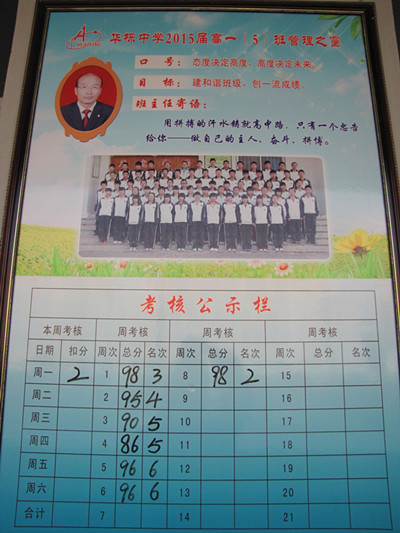 华栎中学2015届高一（5）班管理之窗
口 号：态度决定高度，高度决定未来。
目 标：建和谐班级，创一流成绩。
班主任寄语：
用拼搏的汗水铺就高中路，只有一个忠告
给你——做自己的主人，奋斗、拼博。
考核公示栏
本周考核 周考核 周考核 周考核
日期 扣分 周次 总分 名次 周次 总分 名次 周次 总分 名次
周一 2 1 98 3 8 98 2 15
周二 2 95 4 9 16
周三 3 90 5 10 17
周四 4 86 5 11 18
周五 5 96 6 12 19
周六 6 96 6 13 20
合计 7 14 21